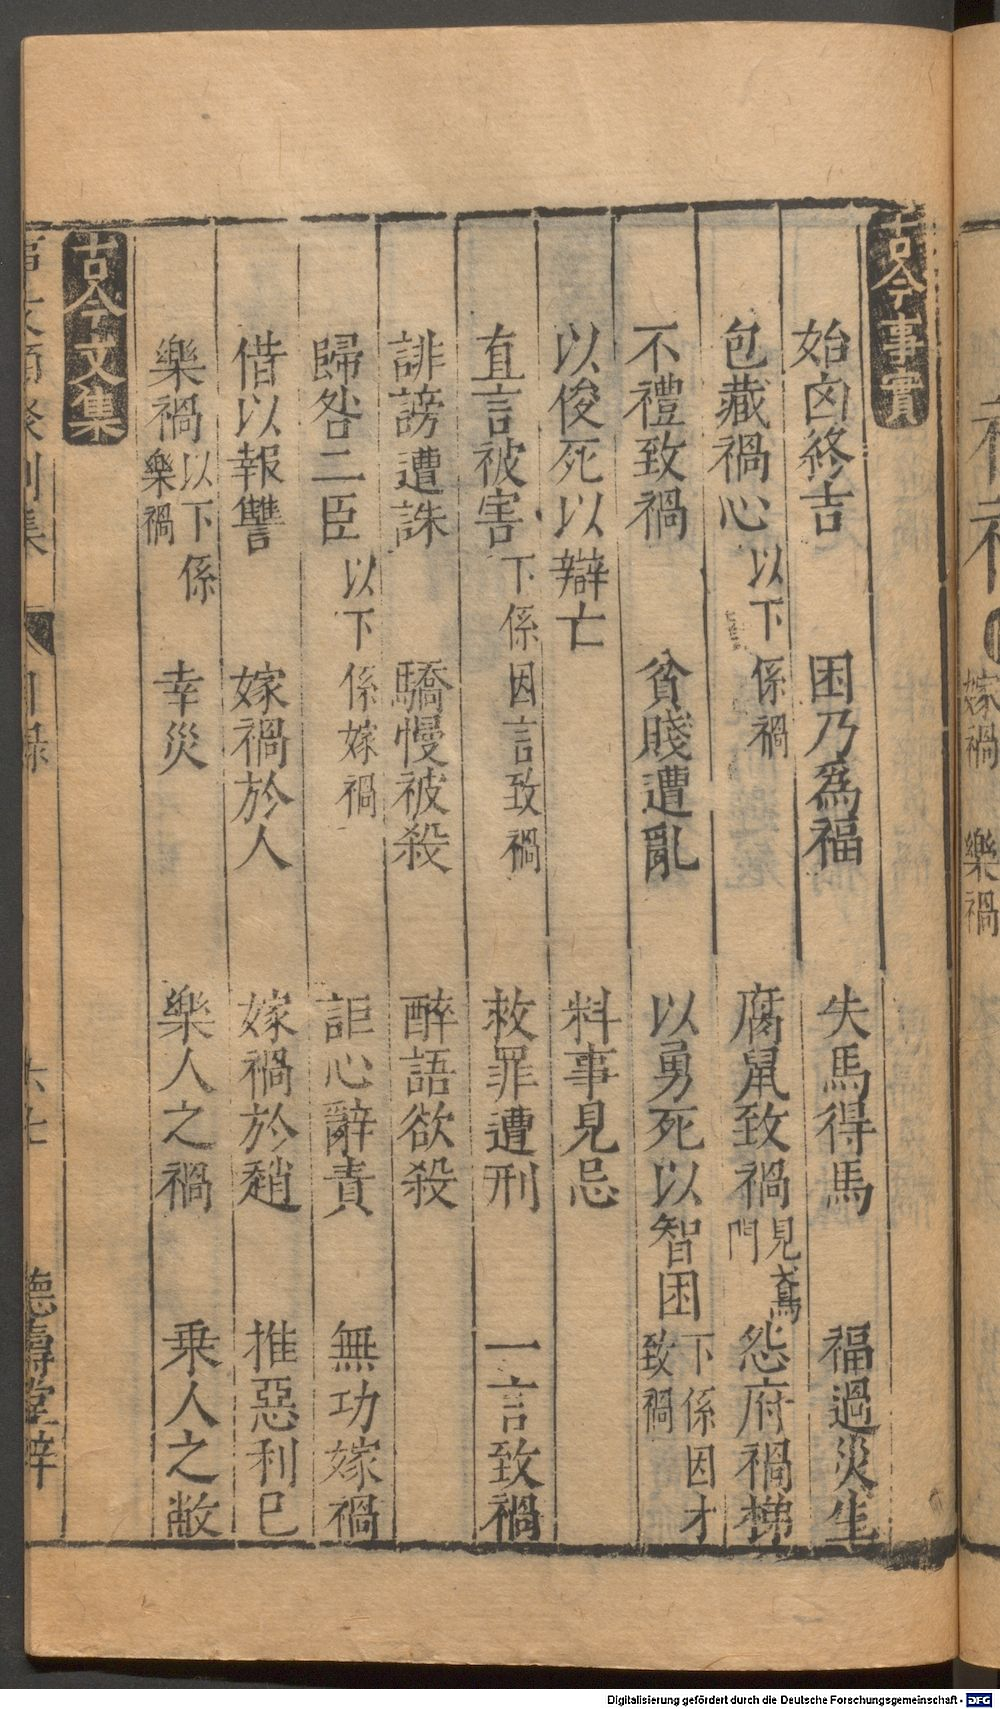 古今事實
始凶終吉　困乃爲福　失馬得馬　福過災生
包藏禍心以下係禍　腐鼠致禍見鳶門　怨府禍梯
不禮致禍　貧賤遭亂　以勇死以智困下係因才致禍
以俊死以辯亡　料事見忌
直言被害下係因言致禍　救罪遭刑　一言致禍
誹謗遭誅　驕慢被殺　醉語欲殺
歸咎二臣以下係嫁禍　詎心辭責　無功嫁禍
借以報讐　嫁禍於人　嫁禍於趙　推惡利已
樂禍以下係樂禍　幸災　樂人之禍　乗人之敝
古今文集
事文類聚別集　目錄　六七　德壽堂梓
嫁禍　樂禍
Digitalisierung gefördert durch die Deutsche Forschungsgemeinschaft - DFG